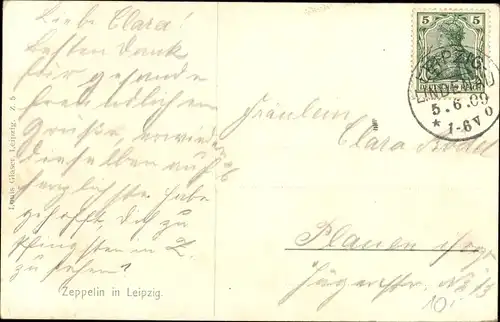 Liebe Clara!
Besten Dank
für gesandte
freundlichen
Grüße, erwidere
dieselben auf
herzlichste. Habe
gehofft, Dich zu
Pfingsten in L.
zu sehen?
Zeppelin in Leipzig.
Louis Glaser, Leipzig. Z. 6
5 5
DEUTSCHES REICH
LEIPZIG
LINDENAU
5.6.09
* 1-6 V
Fräulein
Clara
Plauen
Jägerstr. No
10.-